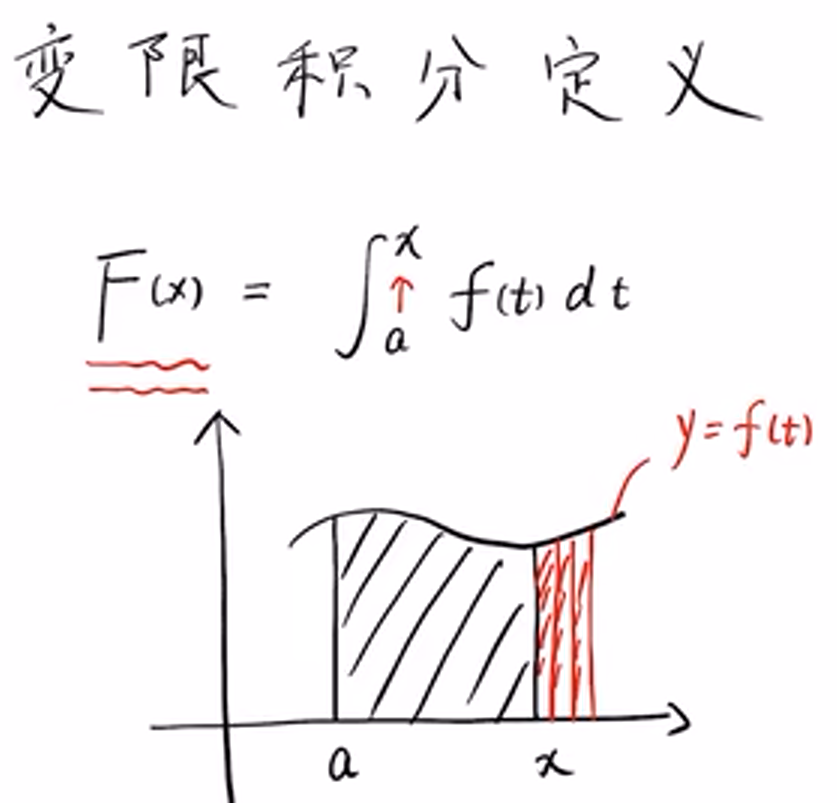 变限积分定义
F(x) = ∫ₐˣ f(t) dt
y = f(t)
a x